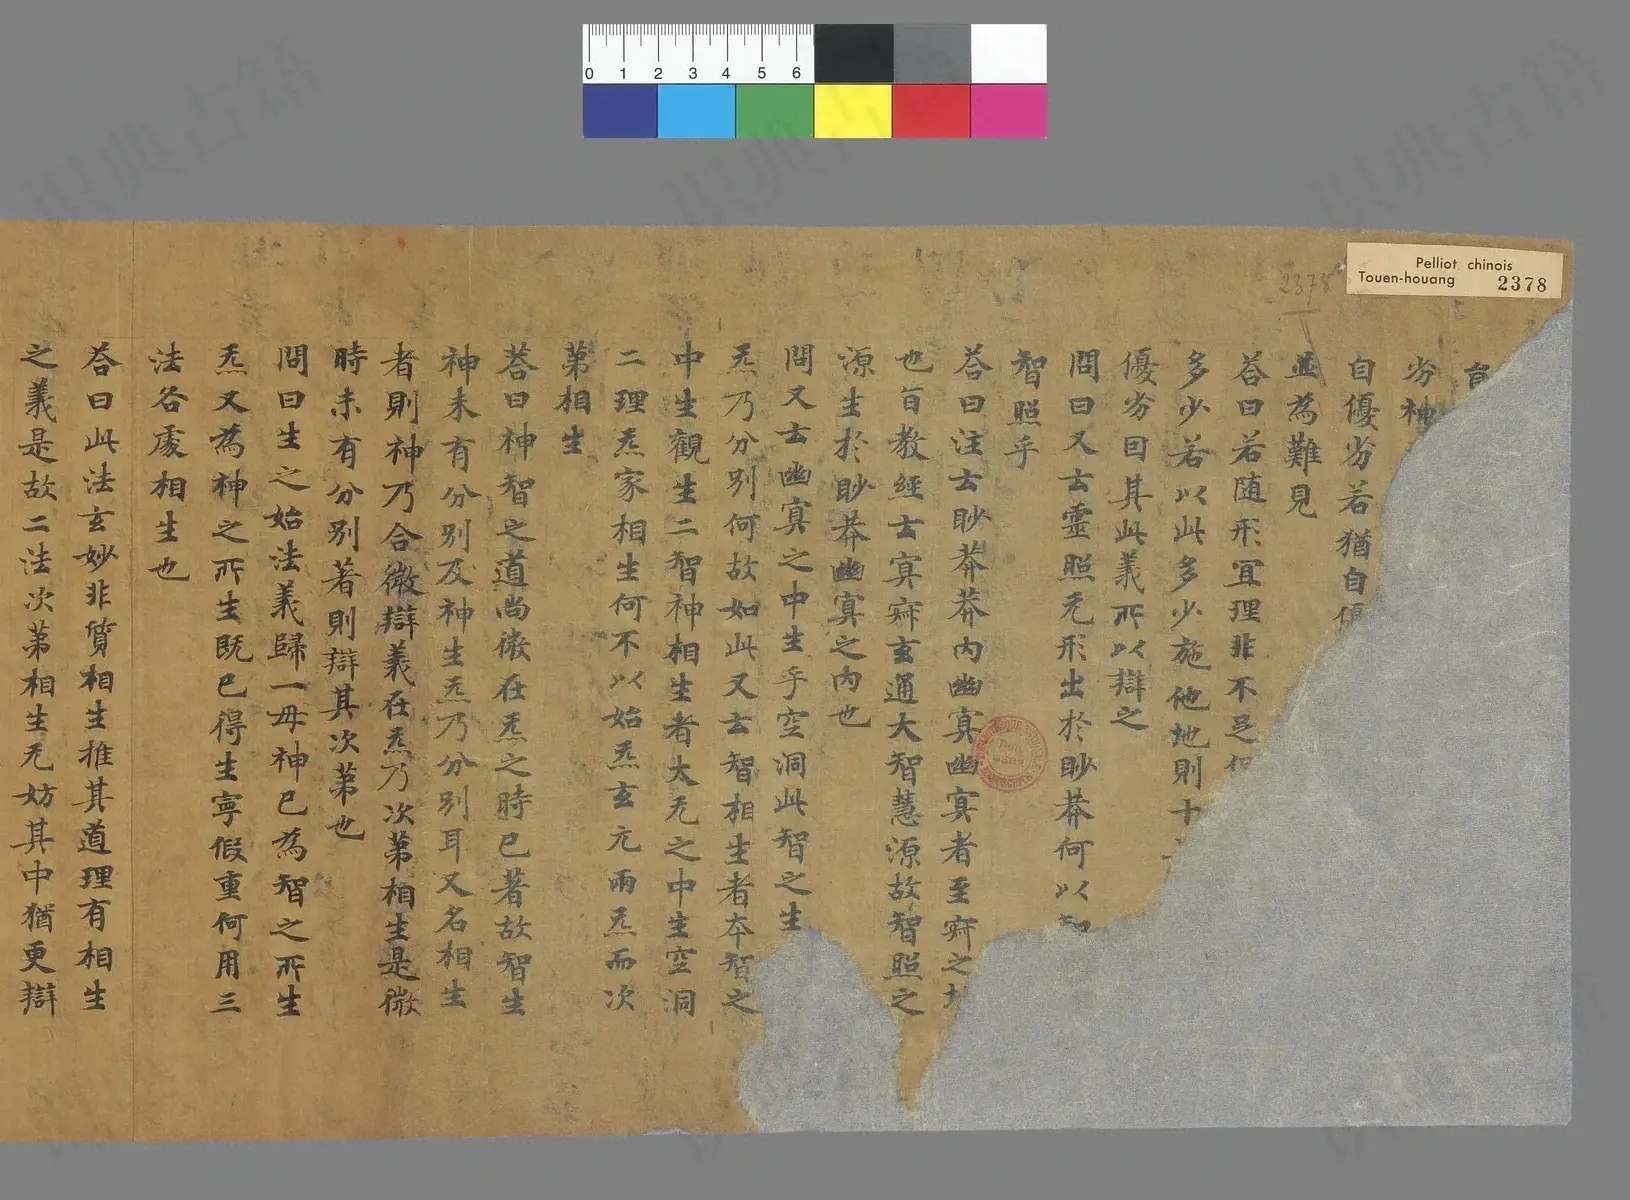 Pelliot chinois
Touen-houang 2378
2378
0 1 2 3 4 5 6
劣神
自優劣若猶自優
並為難見
荅曰若随形冝理非不足但
多少若以此多少施他地則十
優劣因其此義所以辯之
問曰又云靈照无形出於眇莽何以知
智照乎
荅曰注云眇莽莽内幽㝠幽㝠者至寂之
也百教經云㝠寂玄通大智慧源故智照之
源生於眇莽幽㝠之内也
問又云幽㝠之中生乎空洞此智之生
炁乃分別何故如此又云智相生者本智之
中生觀生二智神相生者太无之中生空洞
二理炁家相生何不以始炁玄元兩炁而次
第相生
荅曰神智之道尚微在炁之時已著故智生
神未有分別及神生炁乃分別耳又名相生
者則神乃合微辯義在炁乃次第相生是微
時未有分別著則辯其次第也
問曰生之始法義歸一毋神已為智之所生
炁又為神之所生既已得生寧假重何用三
法各處相生也
荅曰此法玄妙非質相生推其道理有相生
之義是故二法次第相生无妨其中猶更辯
识典古籍
识典古籍
识典古籍